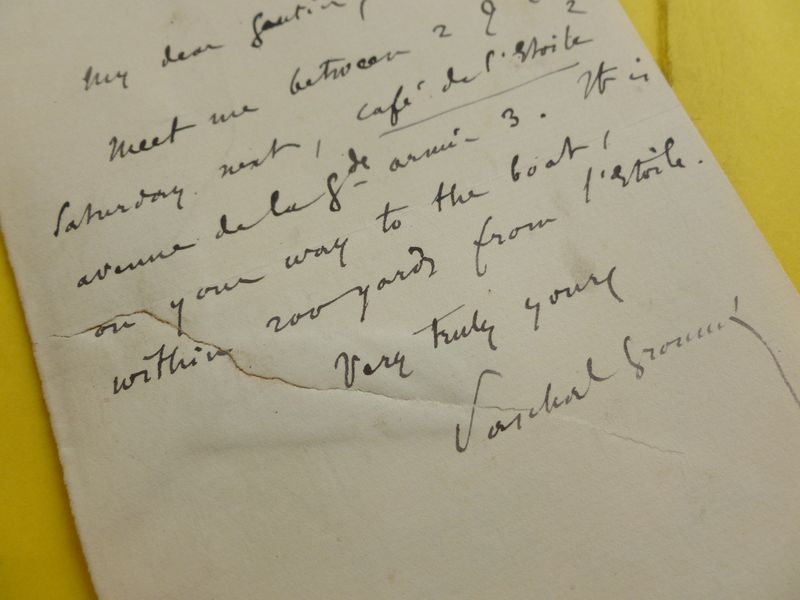 My dear
Meet me between 2 &
Saturday next, café de l'Etoile
avenue de la Gde armée 3. It is
on your way to the boat,
within 200 yards from l'Etoile.
Very truly yours
Paschal Grousset